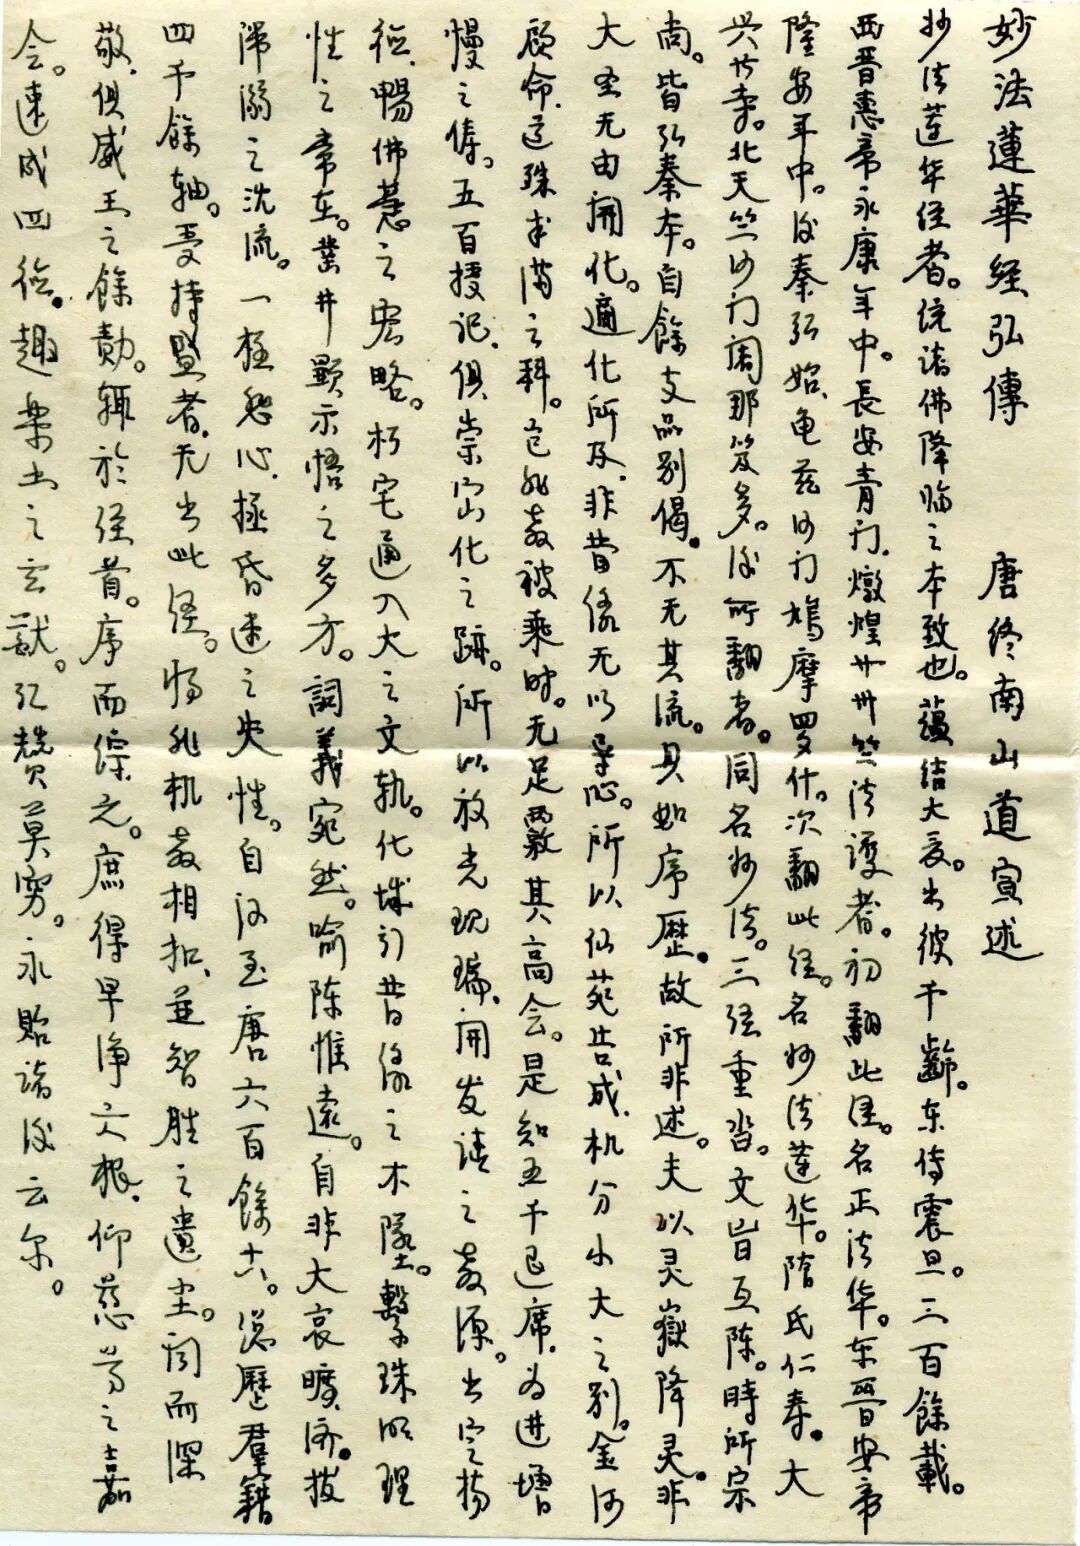 妙法蓮華经弘傳　唐终南山道宣述
妙法莲华经者。统诸佛降临之本致也。蕴结大夏。出彼千齡。东传震旦。三百餘載。
西晋惠帝永康年中。長安青门.燉煌艹卅竺法護者。初翻此经。名正法华。东晋安帝
隆安年中。後秦弘始.龟兹沙门鳩摩罗什。次翻此经。名妙法莲华。隋氏仁寿。大
兴艹寺。北天竺沙门闍那笈多。後所翻者。同名妙法。三经重沓。文旨互陈。時所宗
尚。皆弘秦本。自餘支品别偈。不无其流。具如序歷。故所非述。夫以灵嶽降灵。非
大圣无由開化。適化所及.非昔缘无以导心。所以仙苑告成.机分小大之别。金河
顾命.道殊半满之科。岂非教被乘时。无足覈其高会。是知五千退席.为进增
慢之俦。五百授记.俱崇宻化之跡。所以放光现瑞.開发请之教源。出定扬
德.暢佛慧之宏略。朽宅通入大之文轨。化城引昔缘之不墜。繫珠明理
性之常在。凿井顯示悟之多方。詞義宛然。喻陈惟遠。自非大哀曠济。拔
滞溺之沈流。一极悲心.拯昏迷之失性。自汉至唐六百餘六。總歷羣籍
四千餘轴。受持盛者.无出此经。将非机教相扣.並智胜之遺尘。闻而深
敬.俱威王之餘勣。辄於经首。序而综之。庶得早净六根.仰慈尊之嘉
会。速成四德。趣楽土之玄猷。弘赞莫窮。永貽诸後云尔。